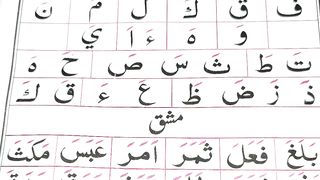 فَ قَ كَ لَ مَ نَ
وَ هَ ءَ اَ يَ
تَ طَ ثَ سَ صَ حَ هَ
ذَ زَ ضَ ظَ عَ ءَ قَ كَ
مشق
بَلَغَ فَعَلَ ثَمَرَ اَمَرَ عَبَسَ مَكَثَ